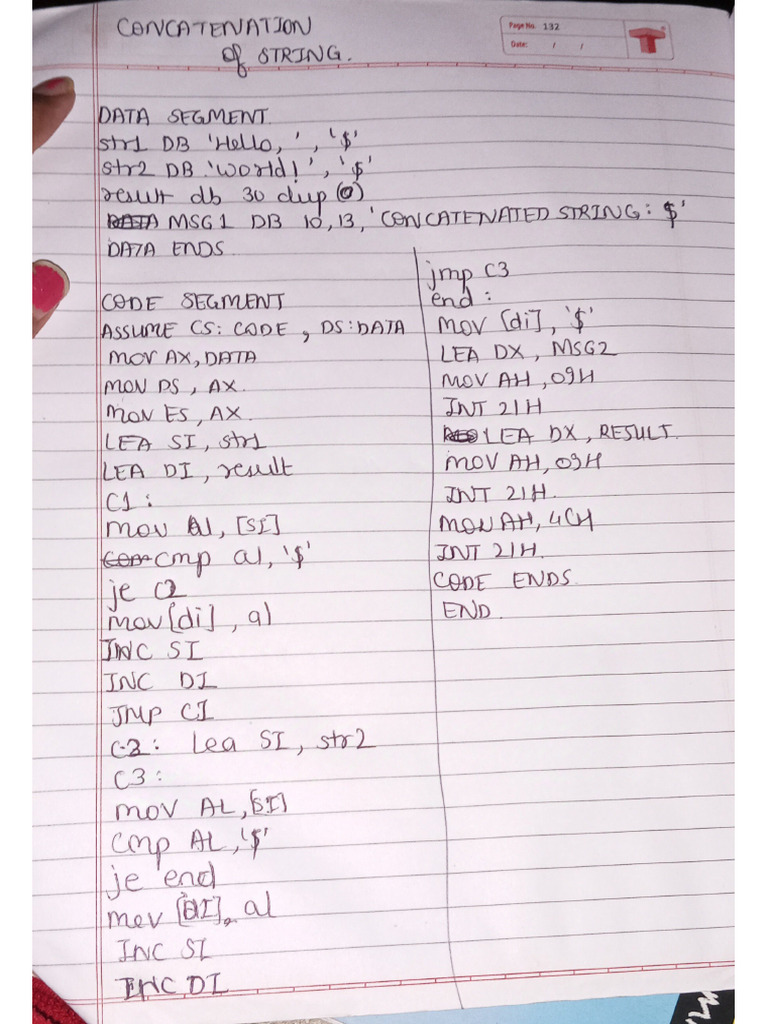 CONCATENATION
of STRING.
Page No. 132
Date: / /
DATA SEGMENT
str1 DB 'Hello, ', '$'
str2 DB 'world!', '$'
result db 30 dup(0)
MSG1 DB 10,13,'CONCATENATED STRING: $'
DATA ENDS
CODE SEGMENT
ASSUME CS: CODE, DS:DATA
MOV AX, DATA
MOV DS, AX
MOV ES, AX
LEA SI, str1
LEA DI, result
C1:
mov al, [SI]
cmp al, '$'
je C2
mov [di], al
INC SI
INC DI
JMP C1
C2: Lea SI, str2
C3:
mov AL, [SI]
cmp AL, '$'
je end
mov [DI], al
INC SI
INC DI
jmp C3
end:
mov [di], '$'
LEA DX, MSG2
MOV AH, 09H
INT 21H
LEA DX, RESULT
MOV AH, 09H
INT 21H.
MOV AH, 4CH
INT 21H.
CODE ENDS
END.